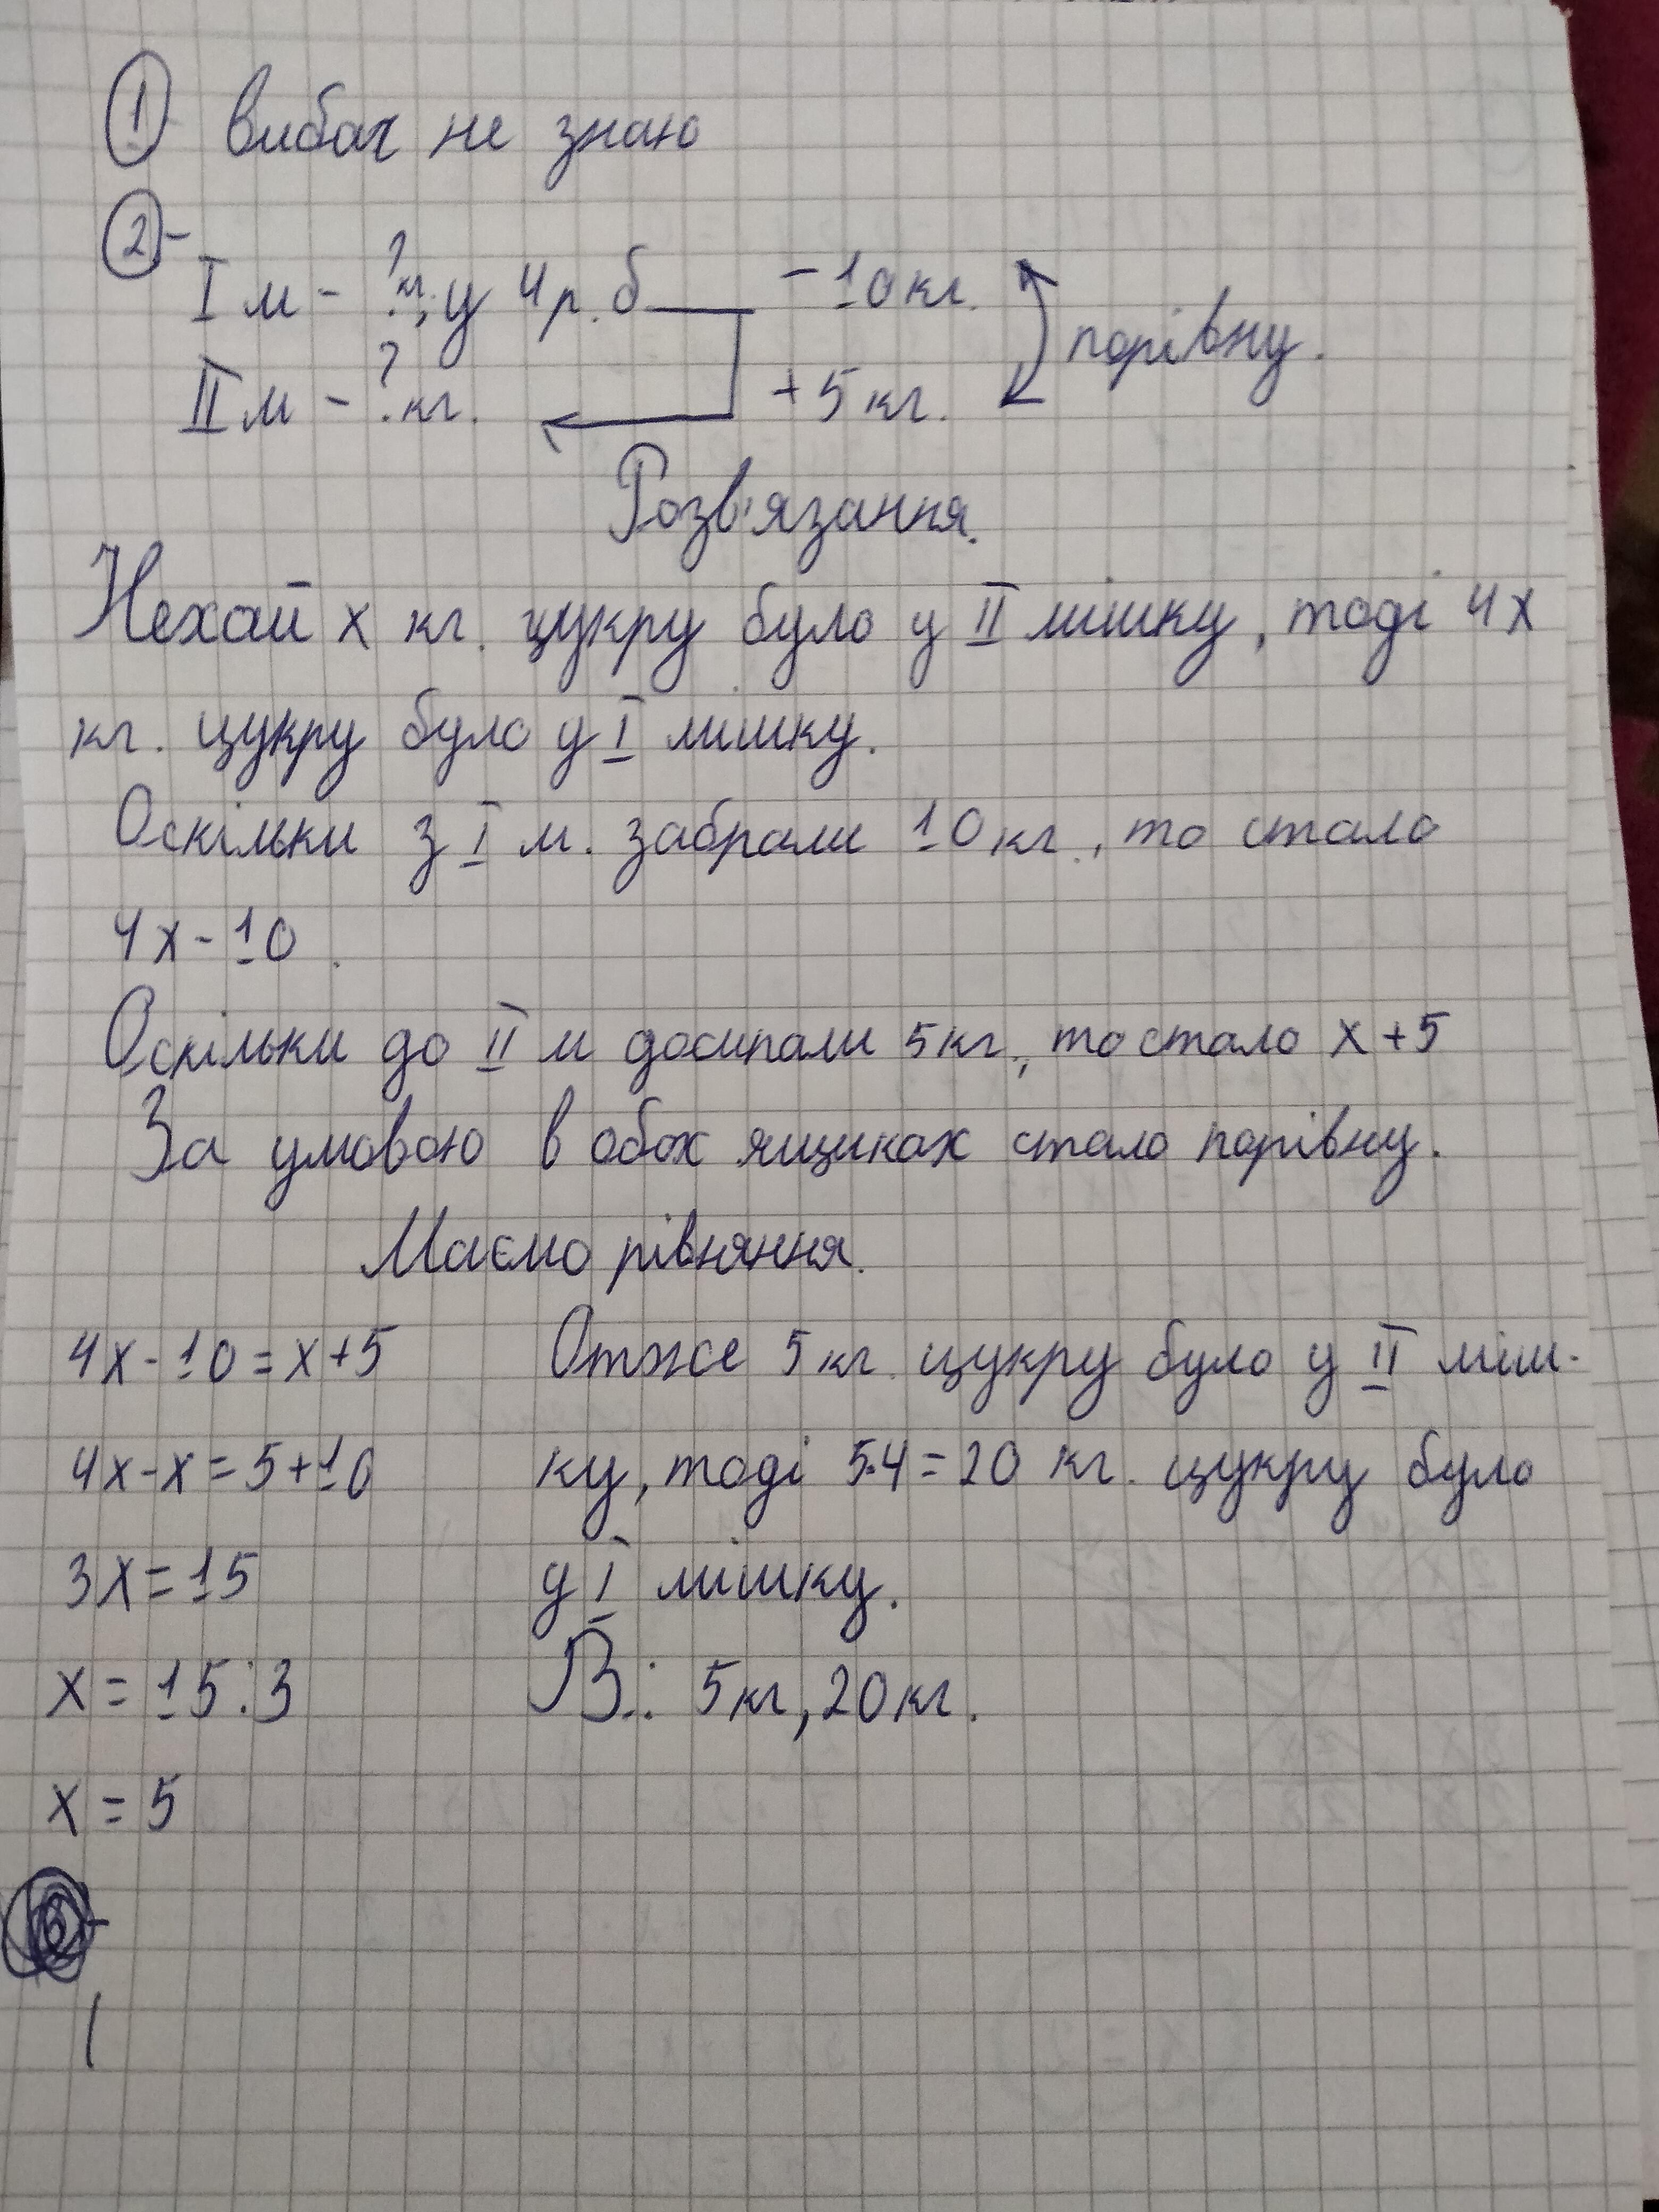 1 вибач не знаю
2 -
I м - ? кг, у 4 р. б - 10 кг.
II м - ? кг. + 5 кг. порівну.
Розв'язання.
Нехай x кг. цукру було у II мішку, тоді 4x
кг. цукру було у I мішку.
Оскільки з I м. забрали 10 кг., то стало
4x - 10.
Оскільки до II м досипали 5 кг., то стало x + 5
За умовою в обох ящиках стало порівну.
Маємо рівняння.
4x - 10 = x + 5
4x - x = 5 + 10
3x = 15
x = 15 : 3
x = 5
Отже 5 кг. цукру було у II міш-
ку, тоді 5·4 = 20 кг. цукру було
у I мішку.
В.: 5 кг, 20 кг.